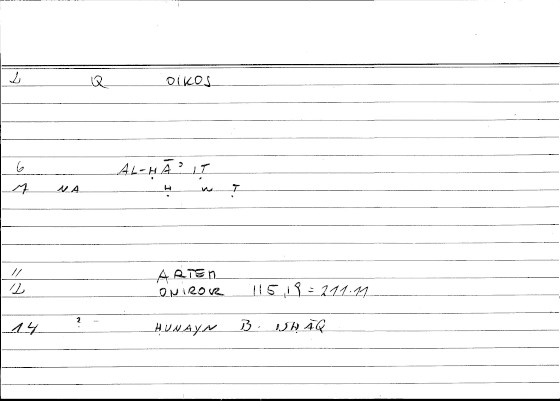 1 Q OIKOS
6 AL-ḤĀʾIṬ
7 NA Ḥ W Ṭ
11 ARTEM
12 ONIROCR 115,19 = 211.11
14 ? - ḤUNAYN B. ISḤĀQ